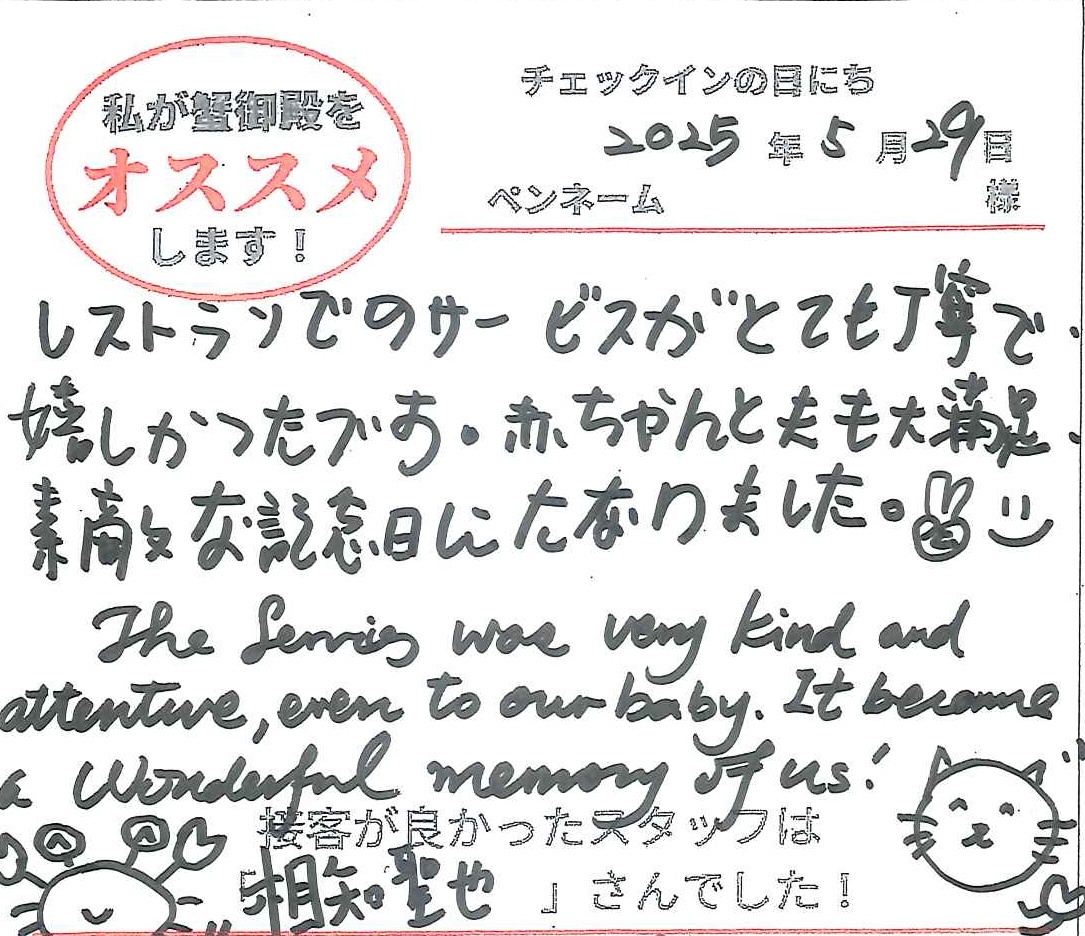 私が蟹御殿を
オススメ
します！
チェックインの日にち
2025 年 5 月 29 日
ペンネーム 様
レストランでのサービスがとても丁寧で
嬉しかったです。赤ちゃんと夫も大満足
素敵な記念日になりました。
The Servies was very kind and
attentive, even to our baby. It became
a wonderful memory of us!
接客が良かったスタッフは
「相知聖也」さんでした！